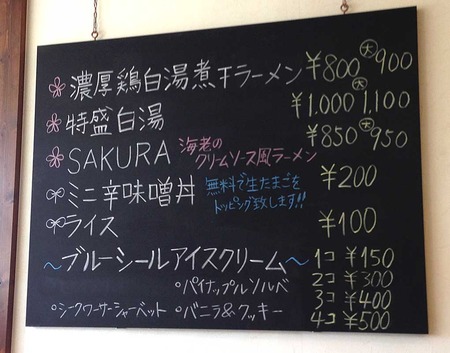 濃厚鶏白湯煮干ラーメン ¥800 大 900
特盛白湯 ¥1,000 大 1,100
SAKURA 海老のクリームソース風ラーメン ¥850 大 950
ミニ辛味噌丼 無料で生たまごをトッピング致します!! ¥200
ライス ¥100
〜ブルーシールアイスクリーム〜 1コ ¥150
。パイナップルソルベ 2コ ¥300
。シークワーサーシャーベット 。バニラ&クッキー 3コ ¥400
4コ ¥500